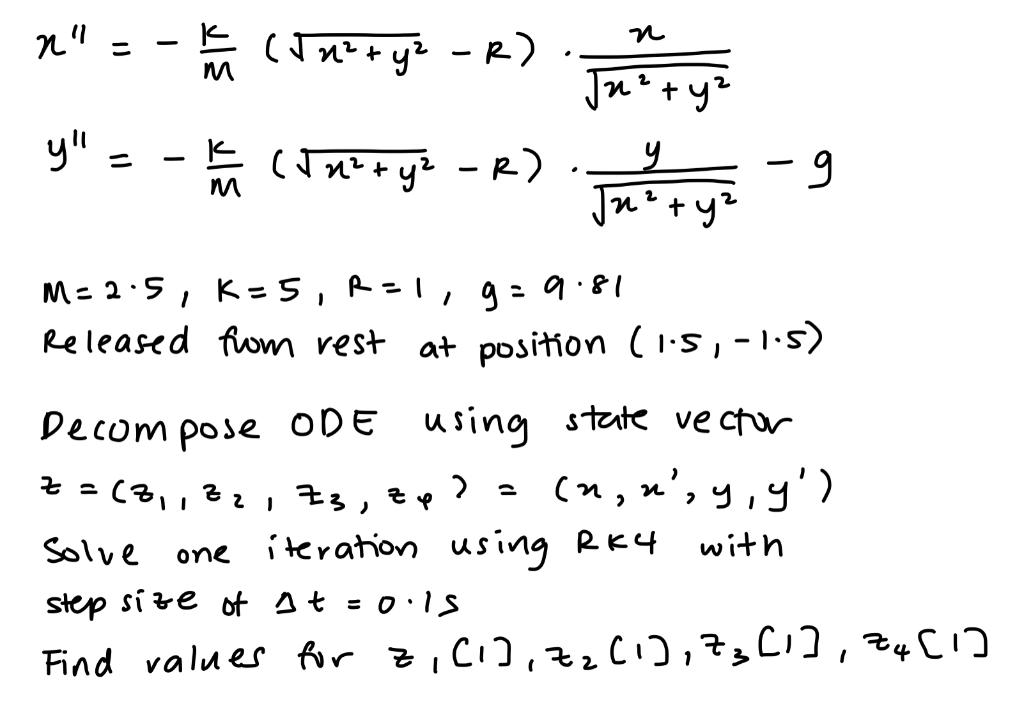 x'' = - K/M (√x² + y² - R) · x/√x² + y²
y'' = - K/M (√x² + y² - R) · y/√x² + y² - g
M = 2.5, K = 5, R = 1, g = 9.81
Released from rest at position (1.5, -1.5)
Decompose ODE using state vector
z = (z₁, z₂, z₃, z₄) = (x, x', y, y')
Solve one iteration using RK4 with
step size of Δt = 0.1s
Find values for z₁[1], z₂[1], z₃[1], z₄[1]